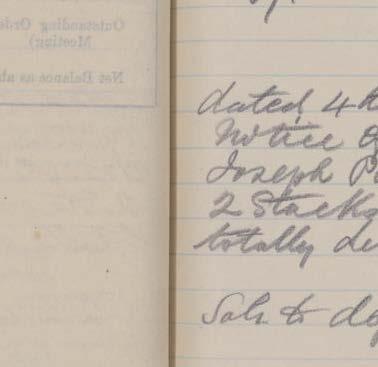 Outstanding Orde
Meeting)
Net Balance as ab
dated 4th
Notice of
Joseph P
2 Stacks
totally de
Sols to